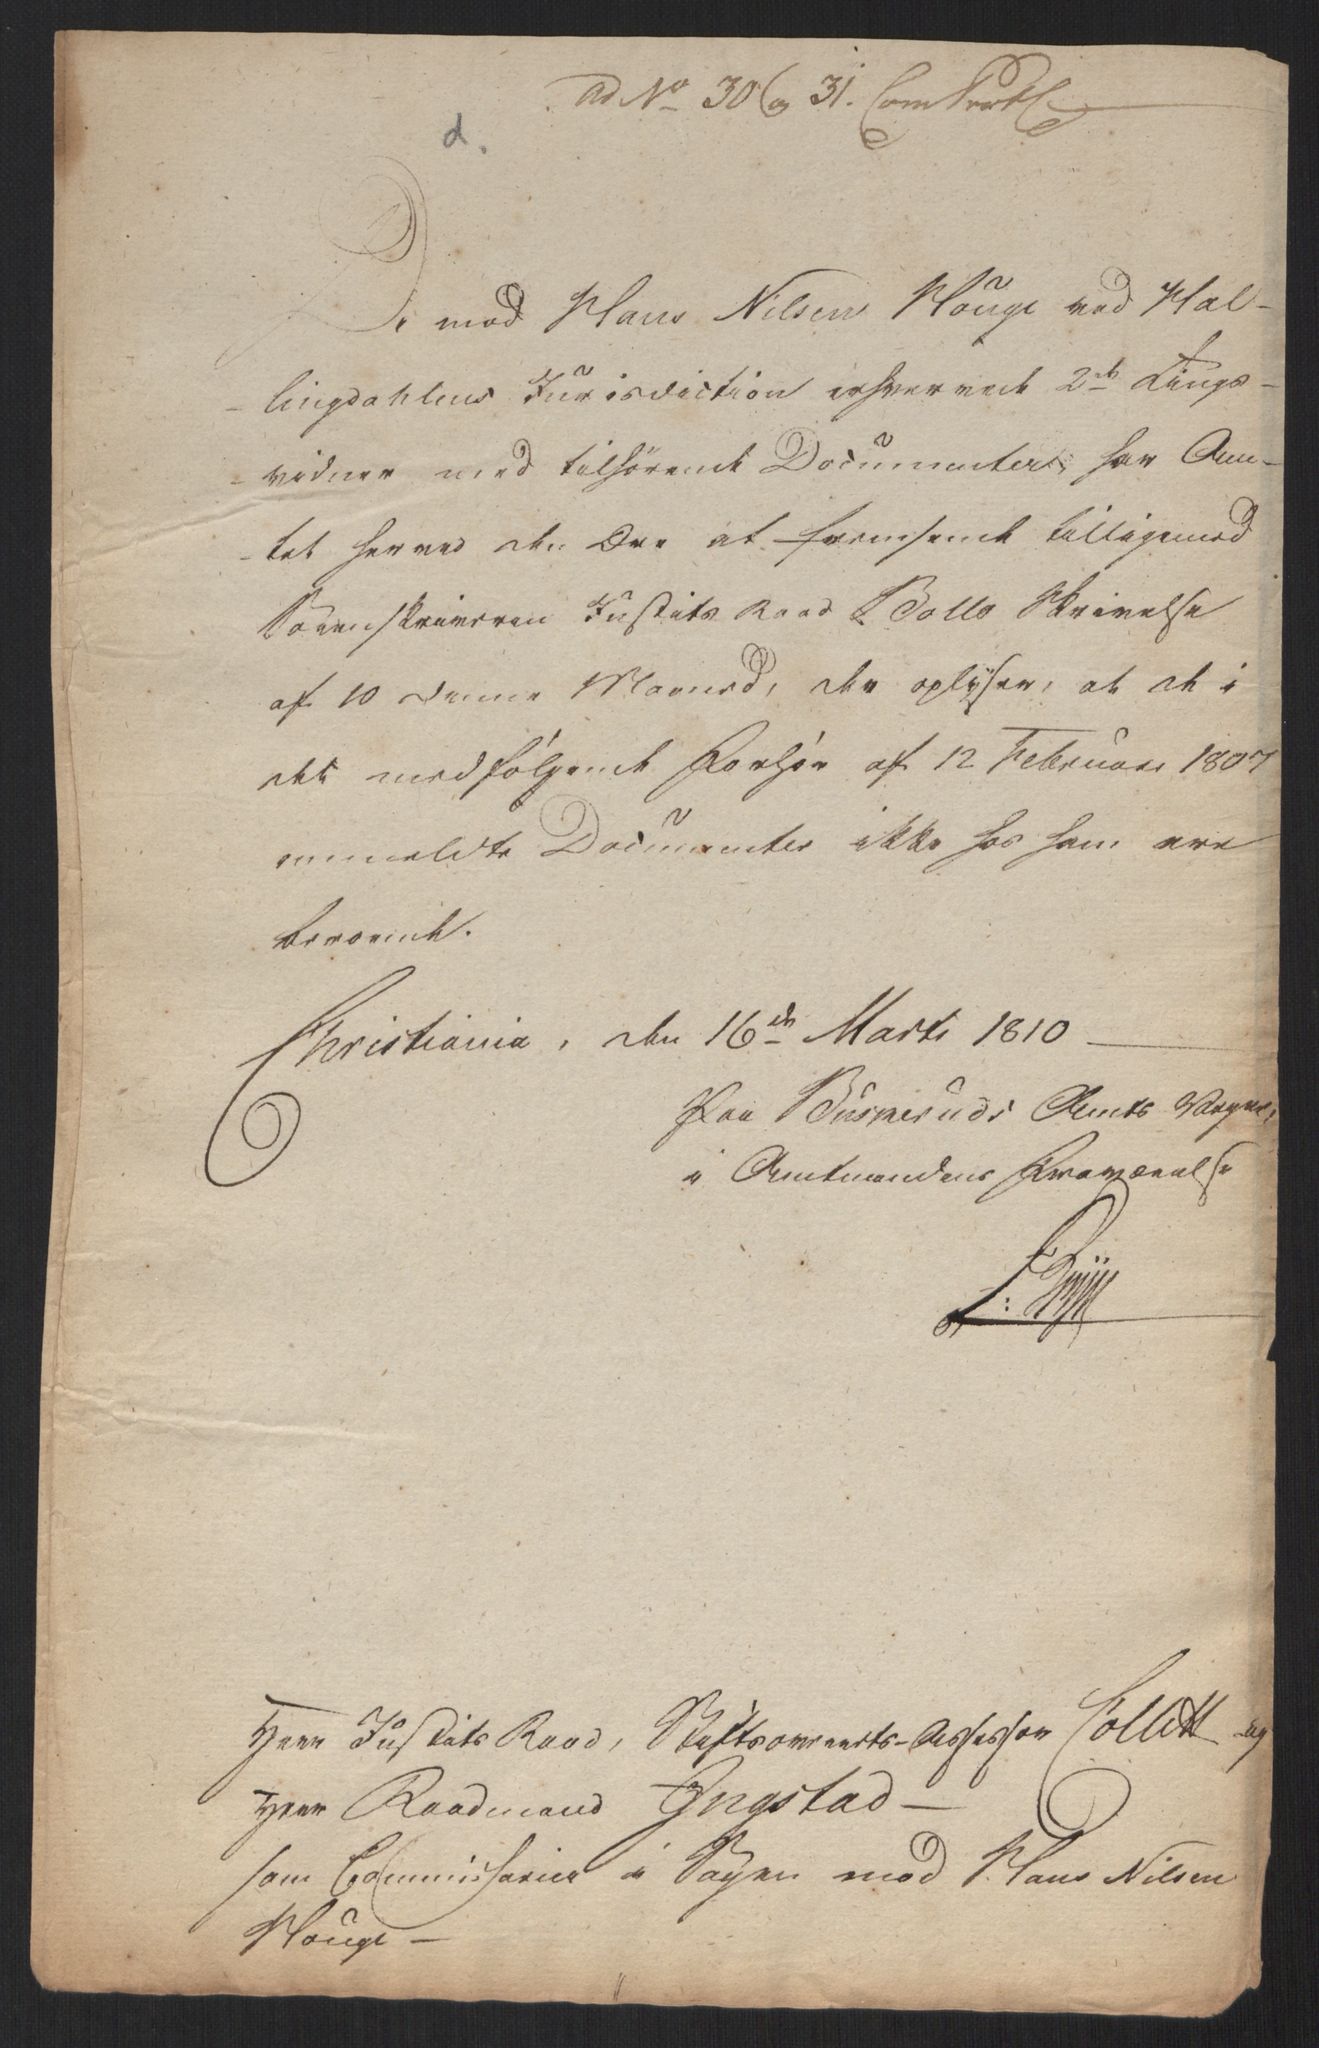 Ad No 30 og 31.
d.
De mod Hans Nilsen Houge ved Hal-
lingdahlens Jurisdiction erhvervede 2de Tings-
vidner med tilhörende Documenter, har Am-
tet herved den Ære at fremsende tilligemed
Sorenskriveren Justits Raad Bolls Skrivelse
af 10 denne Maaned, der oplyser, at de i
det medfølgende Forhør af 12 Februari 1807
anmeldte Documenter ikke hos ham ere
beroende.
Christiania, den 16de Marts 1810
Paa Buskeruds Amts Vegne,
i Amtmandens Fraværelse
Herr Justits Raad, Stiftsoverrets-Assessor Collett og
Herr Raadmand Yngstad —
som Commissarier i Sagen mod Hans Nilsen
Houge —